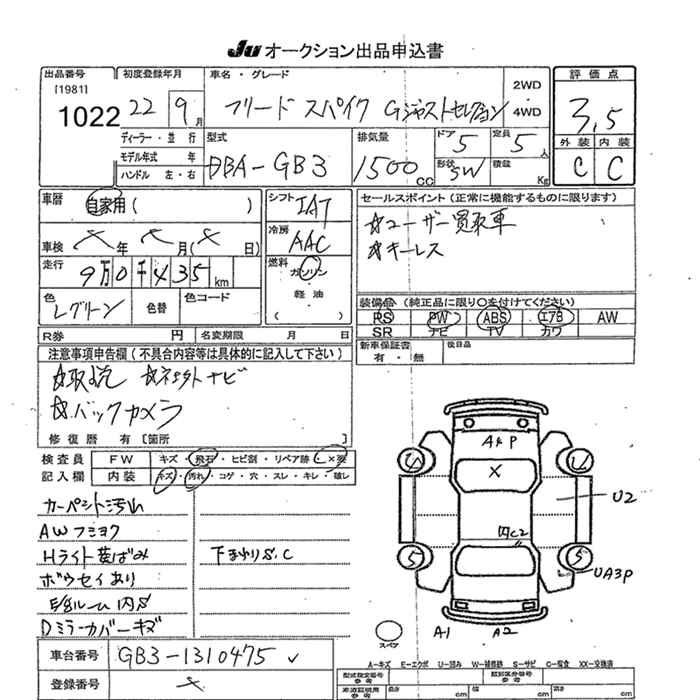 Ju オークション出品申込書
出品番号 初度登録年月 車名・グレード 評価点
[1981]
1022 22 9月 フリード スパイク Gジャストセレクション 2WD 4WD 3.5
ディーラー・並行 型式 排気量 ドア 定員 外装 内装
モデル年式 年 DBA-GB3 1500CC 5 5人 C C
ハンドル 左・右 形状 SW 積載 Kg
車歴 自家用( ) シフト IAT セールスポイント (正常に機能するものに限ります)
車検 年 月 ( 日) 冷房 AAC ☆ユーザー買取車
☆キーレス
走行 9万0千435km 燃料 ガソリン・軽油・( )
色 Lグリーン 色替 色コード 装備品 (純正品に限り○を付けてください)
PS PW ABS エアB AW
R券 円 名変期限 月 日 SR ナビ TV カワ
新車保証書 有・無 後日品
注意事項申告欄 (不具合内容等は具体的に記入して下さい)
☆取説 ☆社外ナビ
☆バックカメラ
修復歴 有 [箇所 ]
検査員 FW キズ・飛石・ヒビ割・リペア跡
記入欄 内装 キズ・汚れ・コゲ・穴・スレ・キレ・破レ
カーペット汚れ
AWフショク
Hライト黄ばみ 下まわりS.C
ボウセイあり
Dミラーカバーキズ
A&P
X
U2
UA3P
5 5
スペア
A1 A2
車台番号 GB3-1310475
登録番号
A-キズ E-エクボ U-凹み W-補修跡 S-サビ C-腐食 XX-交換済